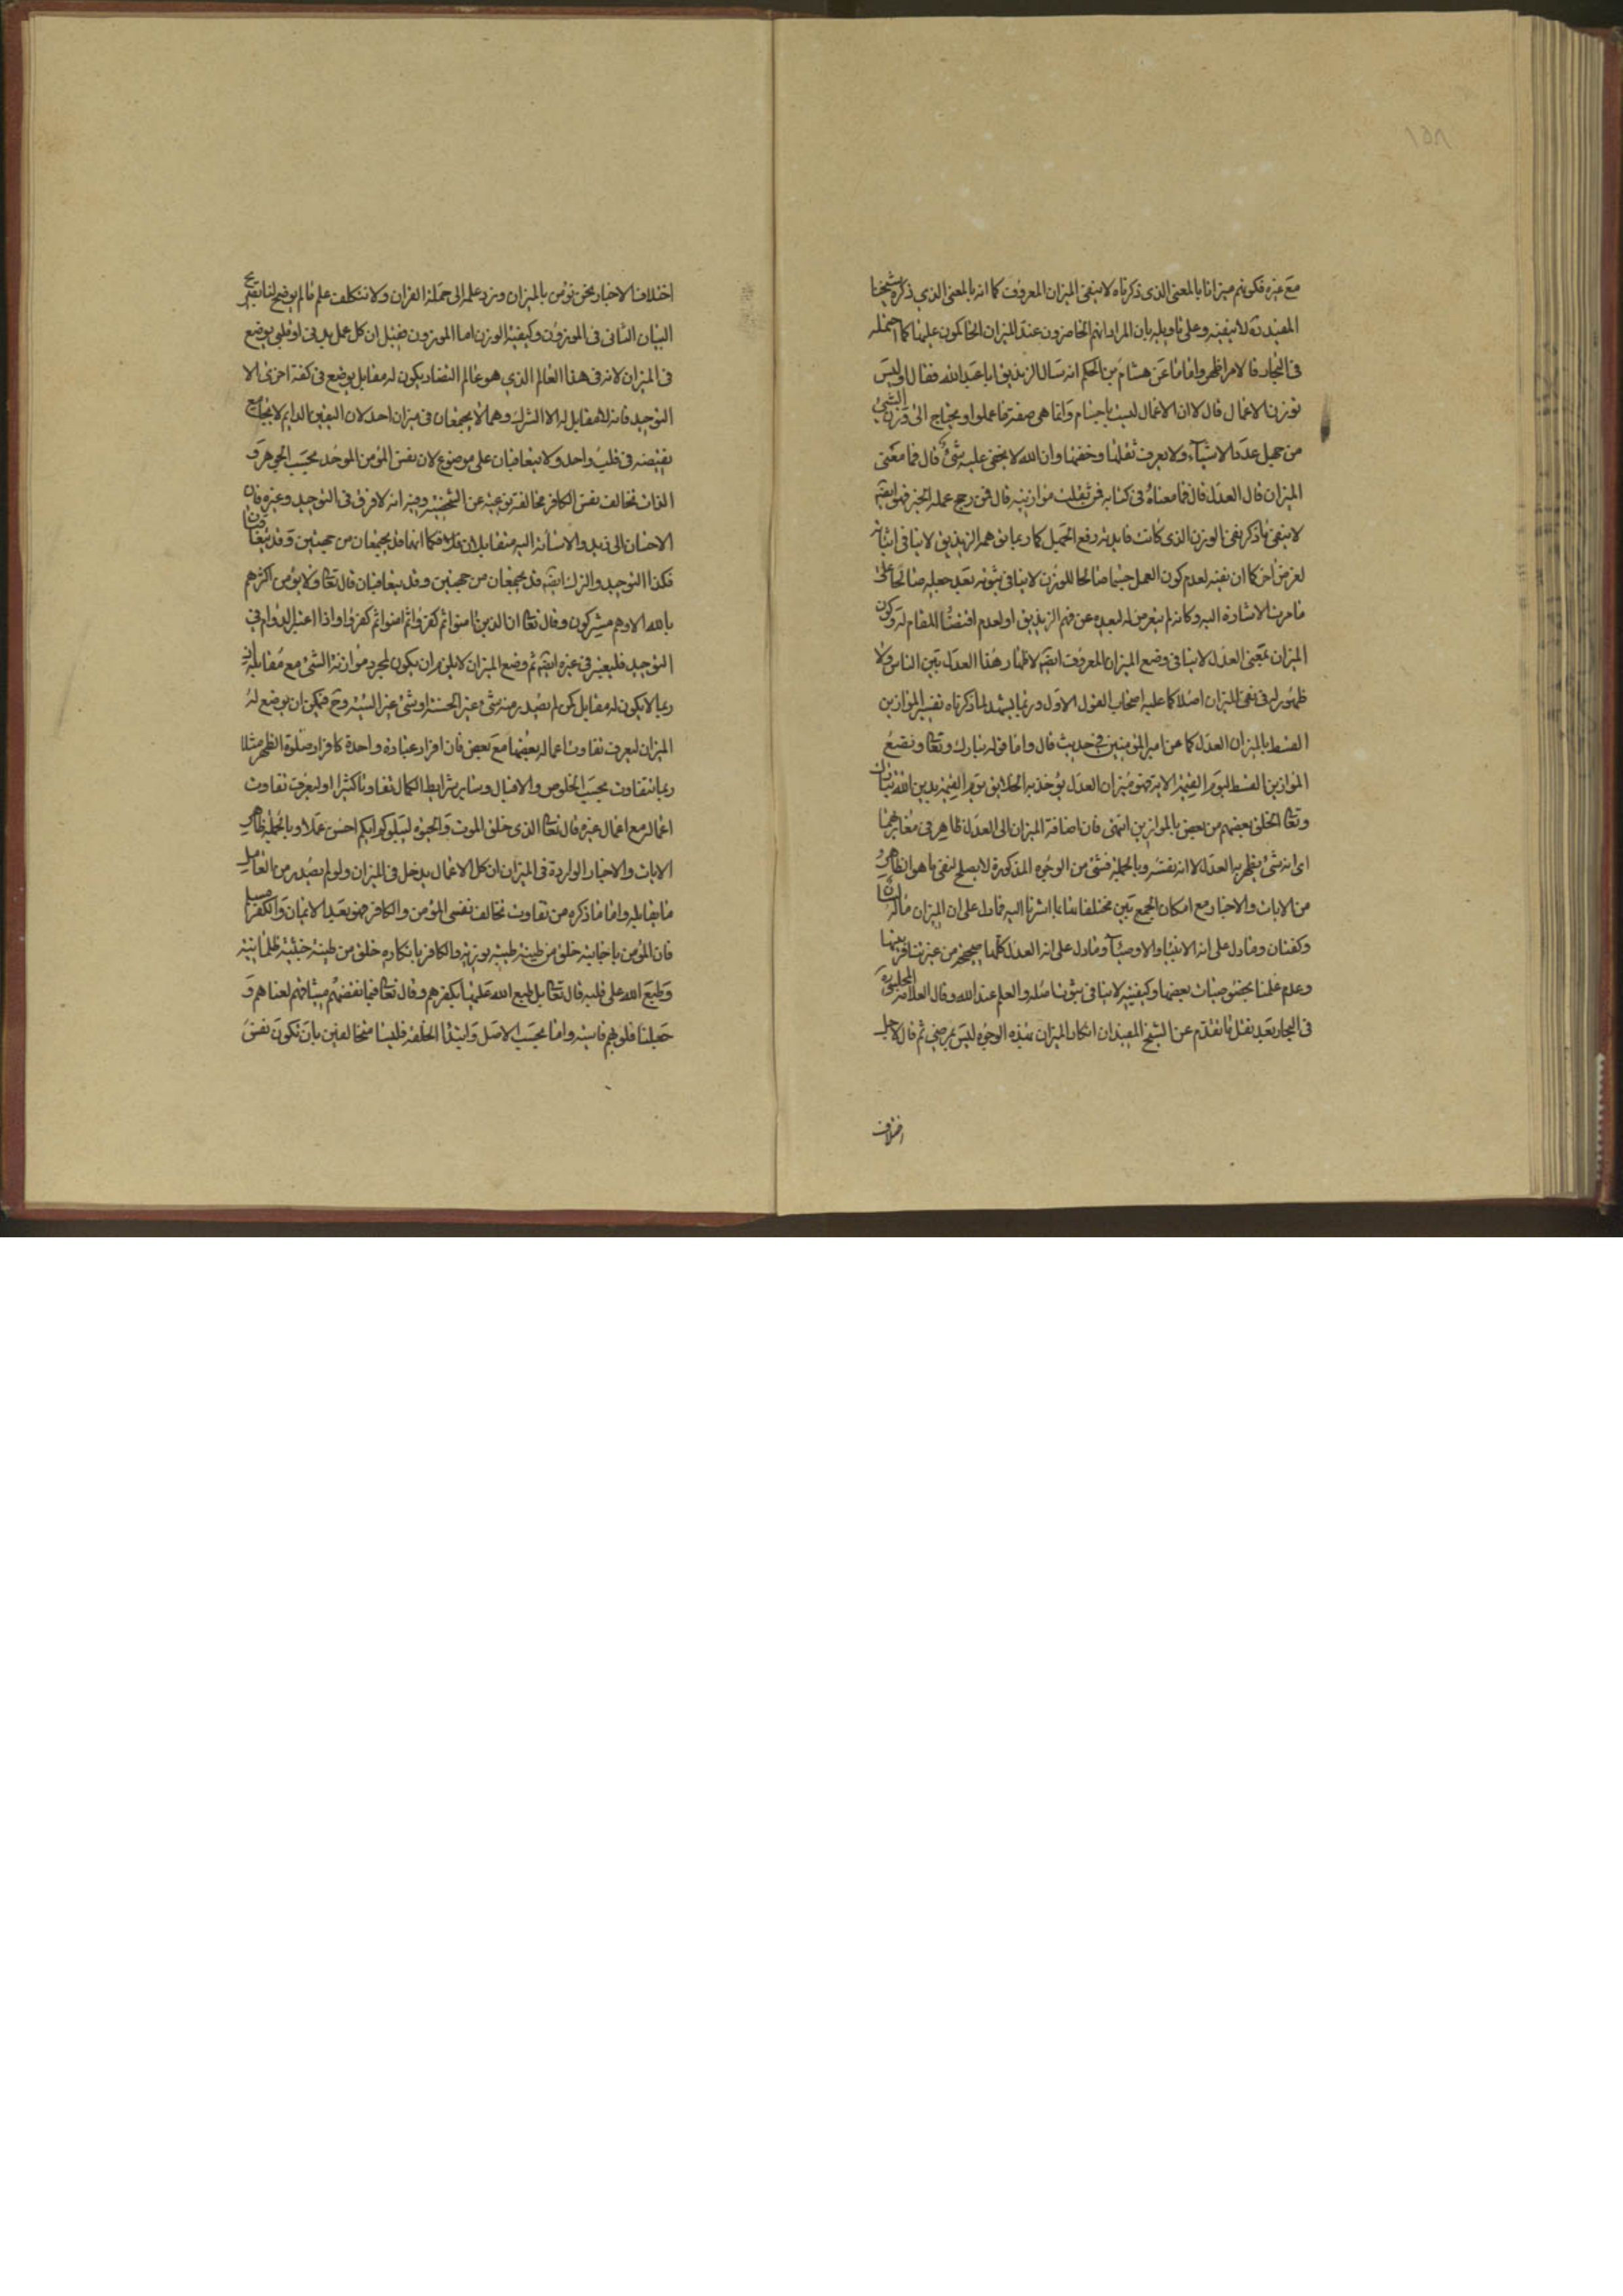 ١٥٨
مع غيره فكونهم ميزانا بالمعنى الذى ذكرناه لا ينفى الميزان المعروف كما انه بالمعنى الذي ذكره شيخنا
المفيد ره لا ينفيه وعلى تاويله بان المراد انهم الحاضرون عند الميزان الحاكمون عليها كما احتمله
فى البحار فالامر اظهر واما ما عن هشام بن الحكم انه سال الزنديق ابا عبد الله فقال او ليس
توزن الاعمال قال لا ان الاعمال ليست باجسام وانما هى صفة ما عملوا و يحتاج الى وزن الشئ
من جهل عدد الاشياء ولا يعرف ثقلها وخفتها وان الله لا يخفى عليه شئ قال فما معنى
الميزان قال العدل قال فما معناه فى كتابه فمن ثقلت موازينه قال فمن رجح عمله الخبر فهو ايضا
لا ينفى ما ذكر نفى الوزن الذى كانت فايدته رفع الجهل كما ربما توهمه الزنديق لا ينافى اثباته
لغرض اخر كما ان نفيه لعدم كون العمل جسما صالحا للوزن لا ينافى ثبوته بعد جعله صالحا على
ما مرت الاشارة اليه وكانه لم يتعرض له لبعده عن فهم الزنديق او لعدم اقتضاء المقام له وكون
الميزان بمعنى العدل لا ينافى وضع الميزان المعروف ايضا لاظهار هذا العدل بين الناس ولا
ظهور له فى نفى الميزان اصلا كما عليه اصحاب القول الاول وربما يشهد لما ذكرناه تفسير الموازين
القسط بالميزان العدل كما عن امير المؤمنين فى حديث قال واما قوله تبارك وتعالى ونضع
الموازين القسط ليوم القيمة الاية فهو ميزان العدل يؤخذ به الخلايق يوم القيمة يدين الله تبارك
وتعالى الخلق بعضهم من بعض بالموازين انتهى فان اضافة الميزان الى العدل ظاهر فى مغايرتهما
اى انه شئ يظهر به العدل لا انه نفسه وبالجملة فشئ من الوجوه المذكورة لا يصلح لنفى ما هو الظاهر
من الايات والاخبار مع امكان الجمع بين مختلفاتها بما اشرنا اليه فما دل على ان الميزان ماله لسان
وكفتان وما دل على انه الانبياء والاوصياء وما دل على انه العدل كلها صحيحة من غير تنافر بينها
وعدم علمنا بحقيقة بعضها وكيفيته لا ينافى ثبوت اصله والعلم عند الله وقال العلامة المجلسى ره
فى البحار بعد نقل ما تقدم عن الشيخ المفيد ان انكار الميزان بهذه الوجوه ليس بمرضي ثم قال لاجل
اختلاف
اختلاف الاخبار نحن نؤمن بالميزان ونرد علمه الى حملة القران ولا نتكلف علم ما لم يوضح لنا بصريح
البيان الثانى فى الموزون وكيفية الوزن اما الموزون فقيل ان كل عمل بدنى او قلبى يوضع
فى الميزان لانه فى هذا العالم الذي هو عالم التضاد يكون له مقابل يوضع فى كفة اخرى الا
التوحيد فانه لا مقابل له الا الشرك وهما لا يجتمعان فى ميزان احد لان اليقين الدايم لا يجامع
نقيضه فى قلب واحد ولا يتعاقبان على موضوع لان نفس المؤمن الموحد بحسب الجوهر و
الذات تخالف نفس الكافر مخالفة نوعية عن الشخصية وفيه انه لا فرق فى التوحيد وغيره فان
الاحسان الى زيد والاسائة اليه متقابلان فكما انهما قد يجتمعان من جهتين وقد يتعاقبان
فكذا التوحيد والشرك ايضا قد يجتمعان من جهتين وقد يتعاقبان قال تعالى وما يؤمن اكثرهم
بالله الا وهم مشركون وقال تعالى ان الذين امنوا ثم كفروا ثم امنوا ثم كفروا واذا اعتبر الدوام في
التوحيد فليعتبر فى غيره ايضا ثم وضع الميزان لا يلزم ان يكون لمجرد موازنة الشئ مع مقابله فانه
ربما لا يكون له مقابل كمن لم يصدر منه شئ غير الحسنة او شئ غير السيئة وح فيمكن ان يوضع له
الميزان ليعرف تفاوت اعماله بعضها مع بعض فان افراد عبادة واحدة كافراد صلوة الظهر مثلا
ربما تتفاوت بحسب الخلوص والاقبال وساير شرايط الكمال تفاوتا كثيرا او ليعرف تفاوت
اعماله مع اعمال غيره قال تعالى الذى خلق الموت والحيوة ليبلوكم ايكم احسن عملا وبالجملة ظاهر
الايات والاخبار الواردة فى الميزان ان كل الاعمال يدخل فى الميزان ولو لم يصدر من العامل
ما يقابله واما ما ذكره من تفاوت تخالف نفسى المؤمن والكافر فهو بعد الايمان والكفر مسلم
فان المؤمن باجابته خلق من طينة طيبة نورية والكافر بانكاره خلق من طينة خبيثة ظلمانية
وطبع الله على قلبه قال تعالى بل طبع الله عليها بكفرهم وقال تعالى فبما نقضهم ميثاقهم لعناهم و
جعلنا قلوبهم قاسية واما بحسب الاصل وابتداء الخلقة فليسا متخالفين بان تكون نفس